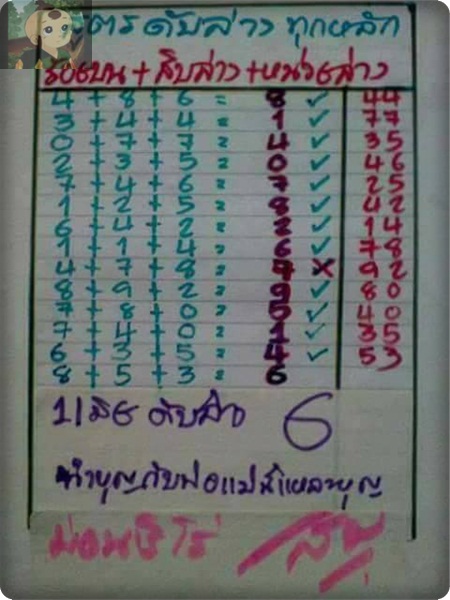 สูตรดับล่าง ทุกหลัก
ร้อยบน+สิบล่าง+หน่วยล่าง
4 + 8 + 6 = 8 ✓ 44
3 + 4 + 4 = 1 ✓ 77
0 + 7 + 7 = 4 ✓ 35
2 + 3 + 5 = 0 ✓ 46
7 + 4 + 6 = 7 ✓ 25
1 + 2 + 5 = 8 ✓ 42
6 + 4 + 2 = 2 ✓ 14
1 + 1 + 4 = 6 ✓ 78
4 + 7 + 8 = 9 ✗ 92
8 + 9 + 2 = 9 ✓ 80
7 + 8 + 0 = 5 ✓ 40
7 + 4 + 0 = 1 ✓ 35
6 + 3 + 5 = 4 ✓ 53
8 + 5 + 3 = 6
1/มิย ดับล่าง 6
ทำบุญกับพ่อแม่